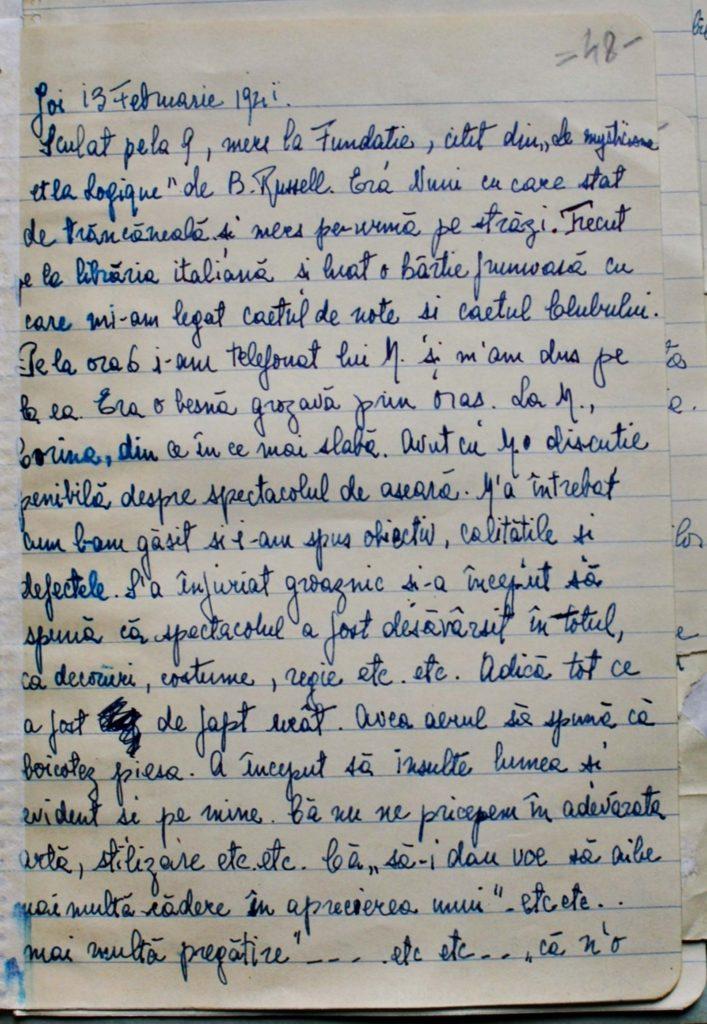 =48-
Joi 13 Februarie 1941.
Sculat pe la 9, mers la Fundatie, citit din „Le mysticisme
et la Logique" de B. Russell. Era Nuni cu care stat
de trăncăneală si mers pe urmă pe străzi. Trecut
pe la librăria italiană si luat o hârtie frumoasă cu
care mi-am legat caetul de note si caetul Clubului.
Pe la ora 6 i-am telefonat lui M. si m'am dus pe
la ea. Era o besnă grozavă prin oras. La M.,
Corina, din ce în ce mai slabă. Avut cu M. o discutie
penibilă despre spectacolul de aseară. M'a întrebat
cum l-am găsit si i-am spus obiectiv, calitătile si
defectele. S'a înfuriat groaznic si-a început să
spună că spectacolul a fost desăvârsit în totul,
ca decoruri, costume, regie etc. etc. Adică tot ce
a fost de fapt urât. Avea aerul să spună că
boicotez piesa. A început să insulte lumea si
evident si pe mine. Că nu ne pricepem în adevărata
artă, stilizare etc. etc. Că „să-i dau voe să aibe
mai multă cădere în aprecierea unui" - etc etc..
mai multă pregătire" ---- etc etc --- „că n'o